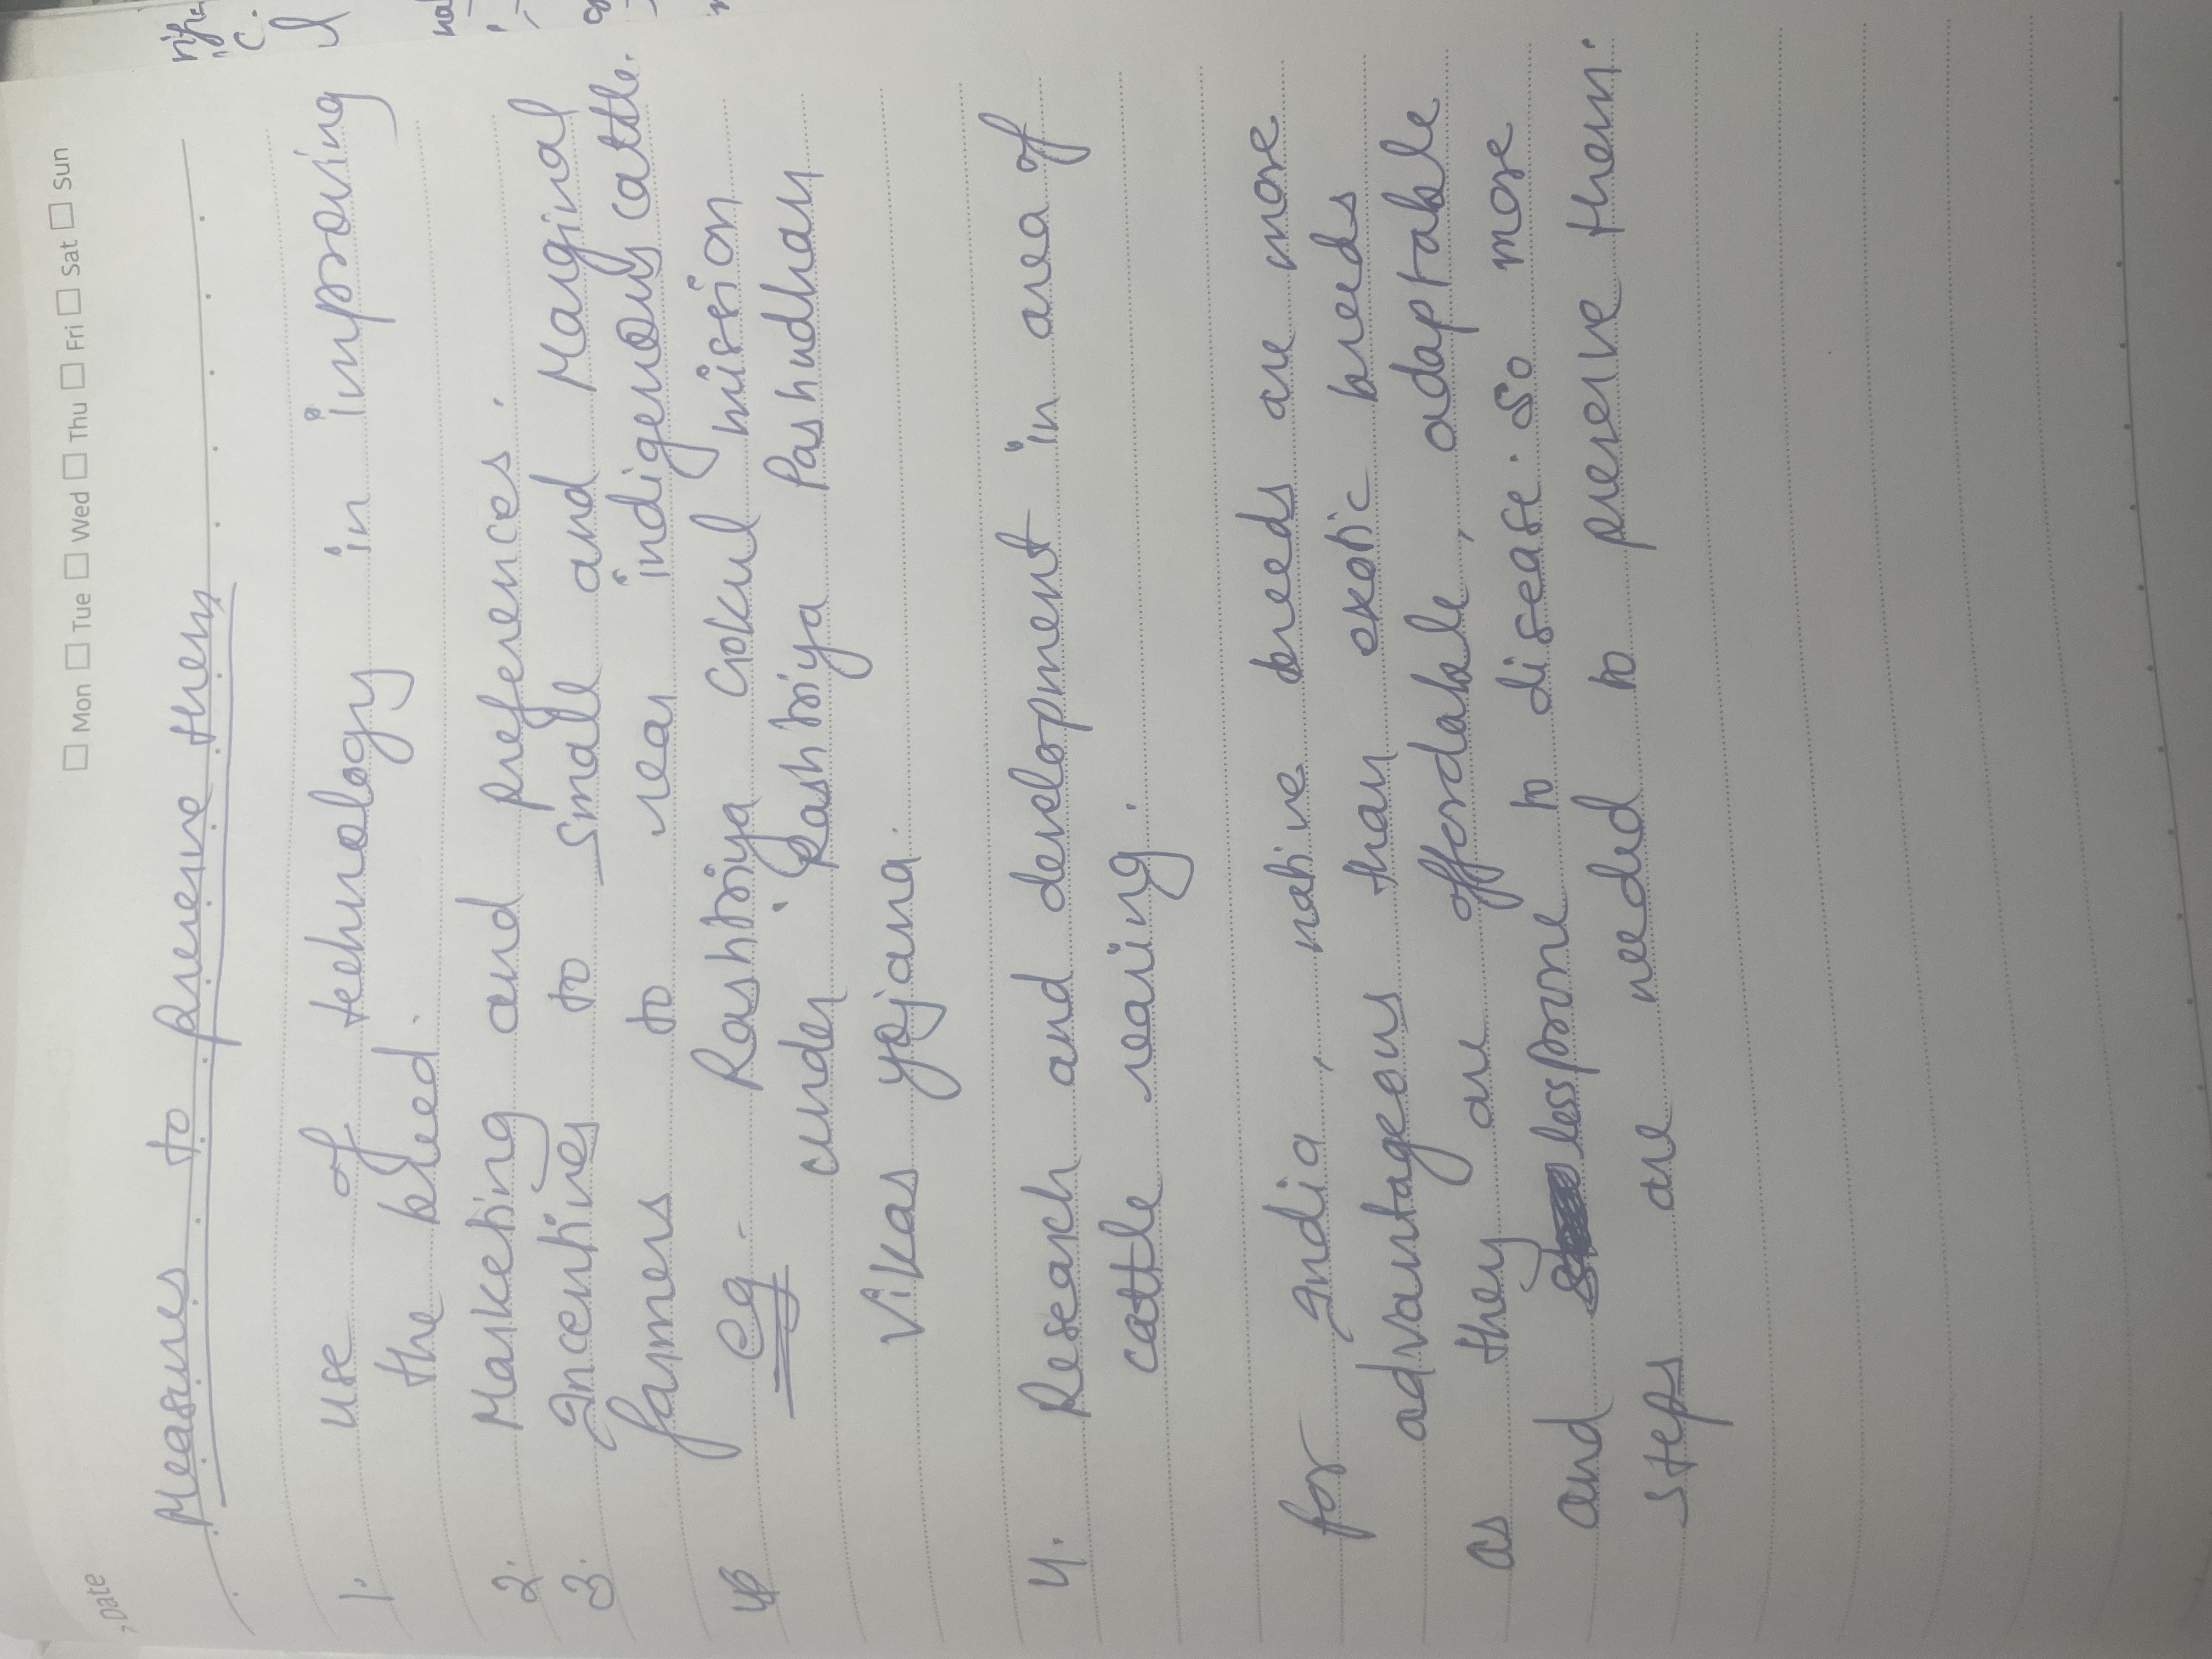 Date
Mon Tue Wed Thu Fri Sat Sun
Measures to preserve them
1. use of technology in improving
the breed.
2. Marketing and preferences.
3. Incentives to small and Marginal
farmers to rear indigenous cattle.
eg - Rashtriya Gokul mission
under Rashtriya Pashudhan
Vikas yojana.
4. Research and development in area of
cattle rearing.
for India, native breeds are more
advantageous than exotic breeds
as they are offordable, adaptable
and less prone to disease. So more
steps are needed to preserve them.